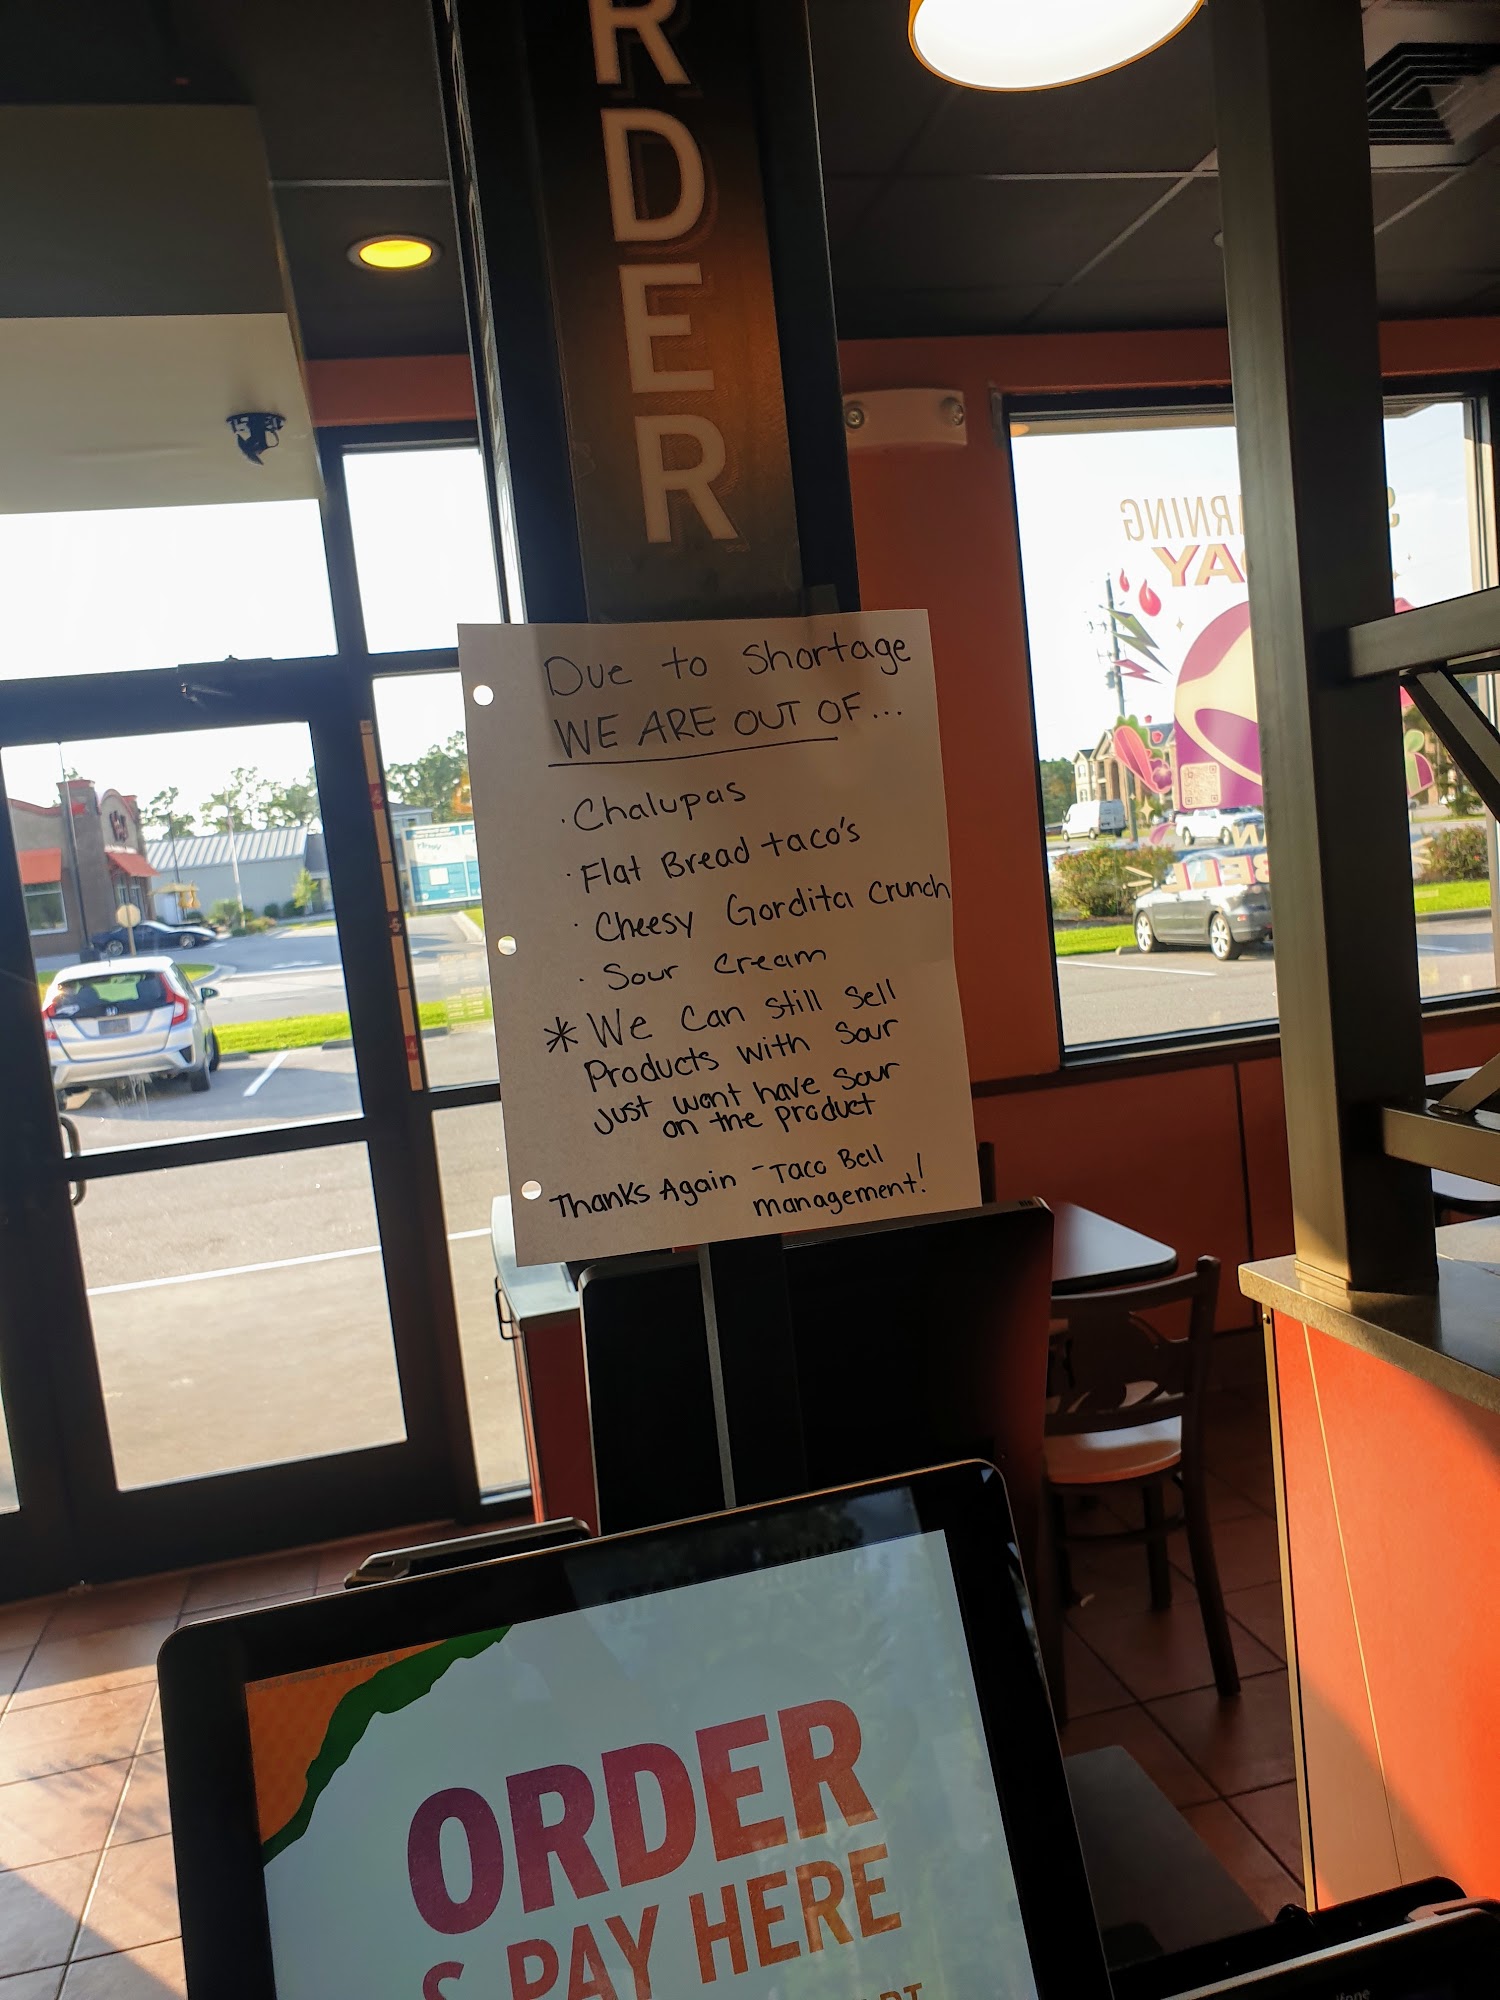 RDER
Due to Shortage
WE ARE OUT OF...
· Chalupas
· Flat Bread taco's
· Cheesy Gordita Crunch
· Sour Cream
* We can still sell
Products with Sour
Just wont have sour
on the product
Thanks Again - Taco Bell
management!
ORDER
& PAY HERE